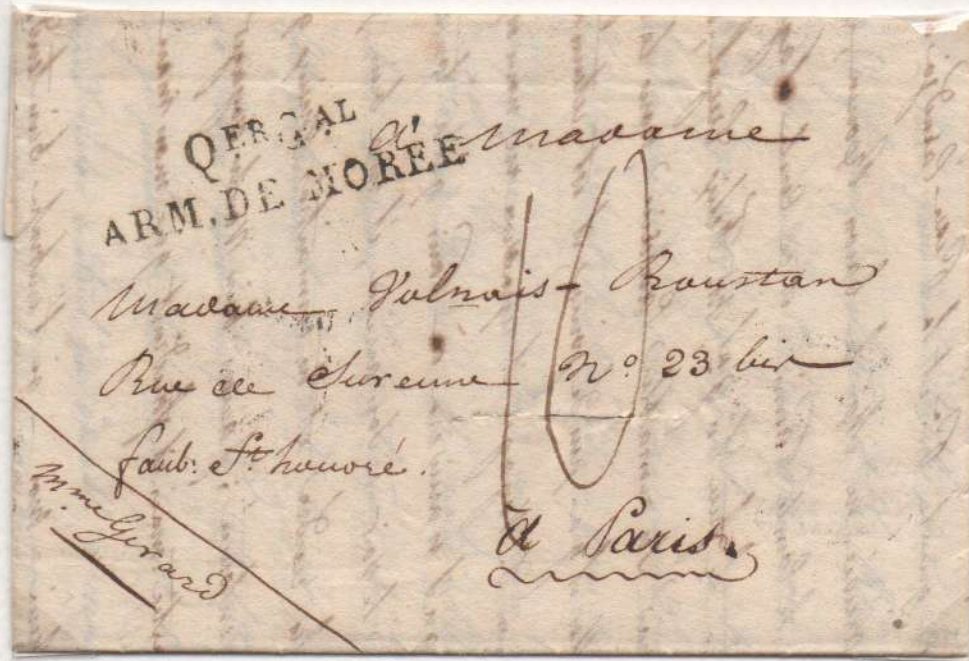 QER GAL
ARM. DE MORÉE
à madame
madame Volnais-Roustan
Rue de Surenne N° 23 bis
faub: St honoré.
10
à Paris.
mme Girard